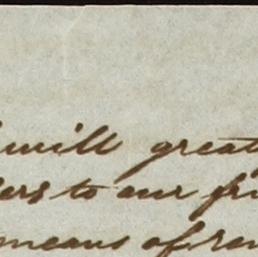 will great
ers to our fri
means of ren